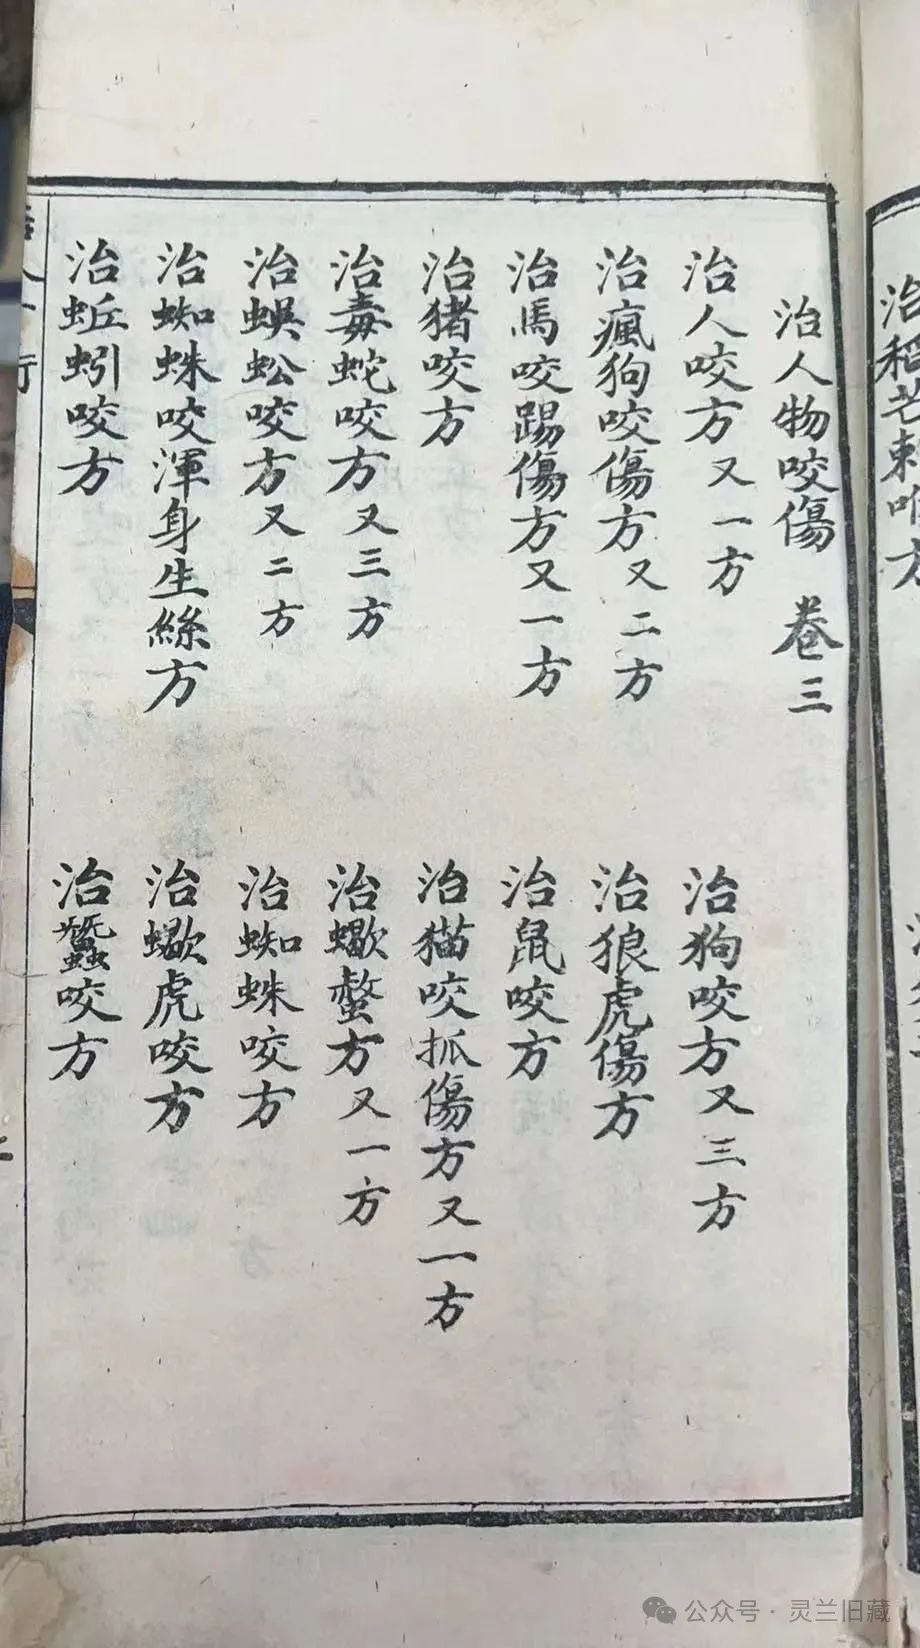 治人物咬傷 卷三
治人咬方 又一方
治狗咬方 又三方
治瘋狗咬傷方 又二方
治狼虎傷方
治馬咬踢傷方 又一方
治鼠咬方
治猪咬方
治猫咬抓傷方 又一方
治毒蛇咬方 又三方
治蠍螫方 又一方
治蜈蚣咬方 又二方
治蜘蛛咬方
治蜘蛛咬渾身生絲方
治蠍虎咬方
治蚯蚓咬方
治蠶咬方
公众号·灵兰旧藏